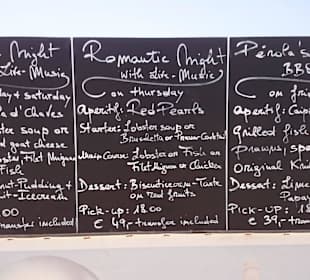 Night
Life-Music
& Saturday
d'Chaves
soup or
goat cheese
Filet Mignon
Fish
Pudding &
Icecream
included
Romantic Night
with Life-Music
on thursday
Aperitif: Red Pearls
Starter: Lobster soup or
Bruschetta or Prawn-Cocktail
Main-Course: Lobster or Fish or
Filet Mignon or Chicken
Dessert: Biscuitcream-Tarte
on Red fruits
Pick-up: 18.00
€ 49,- transfer included
Pérola's
BB
on fri
Aperitif:
grilled fish
prawns
Original
Dessert: Lime
Papay
Pick-up: 18.00
€ 39,- trans